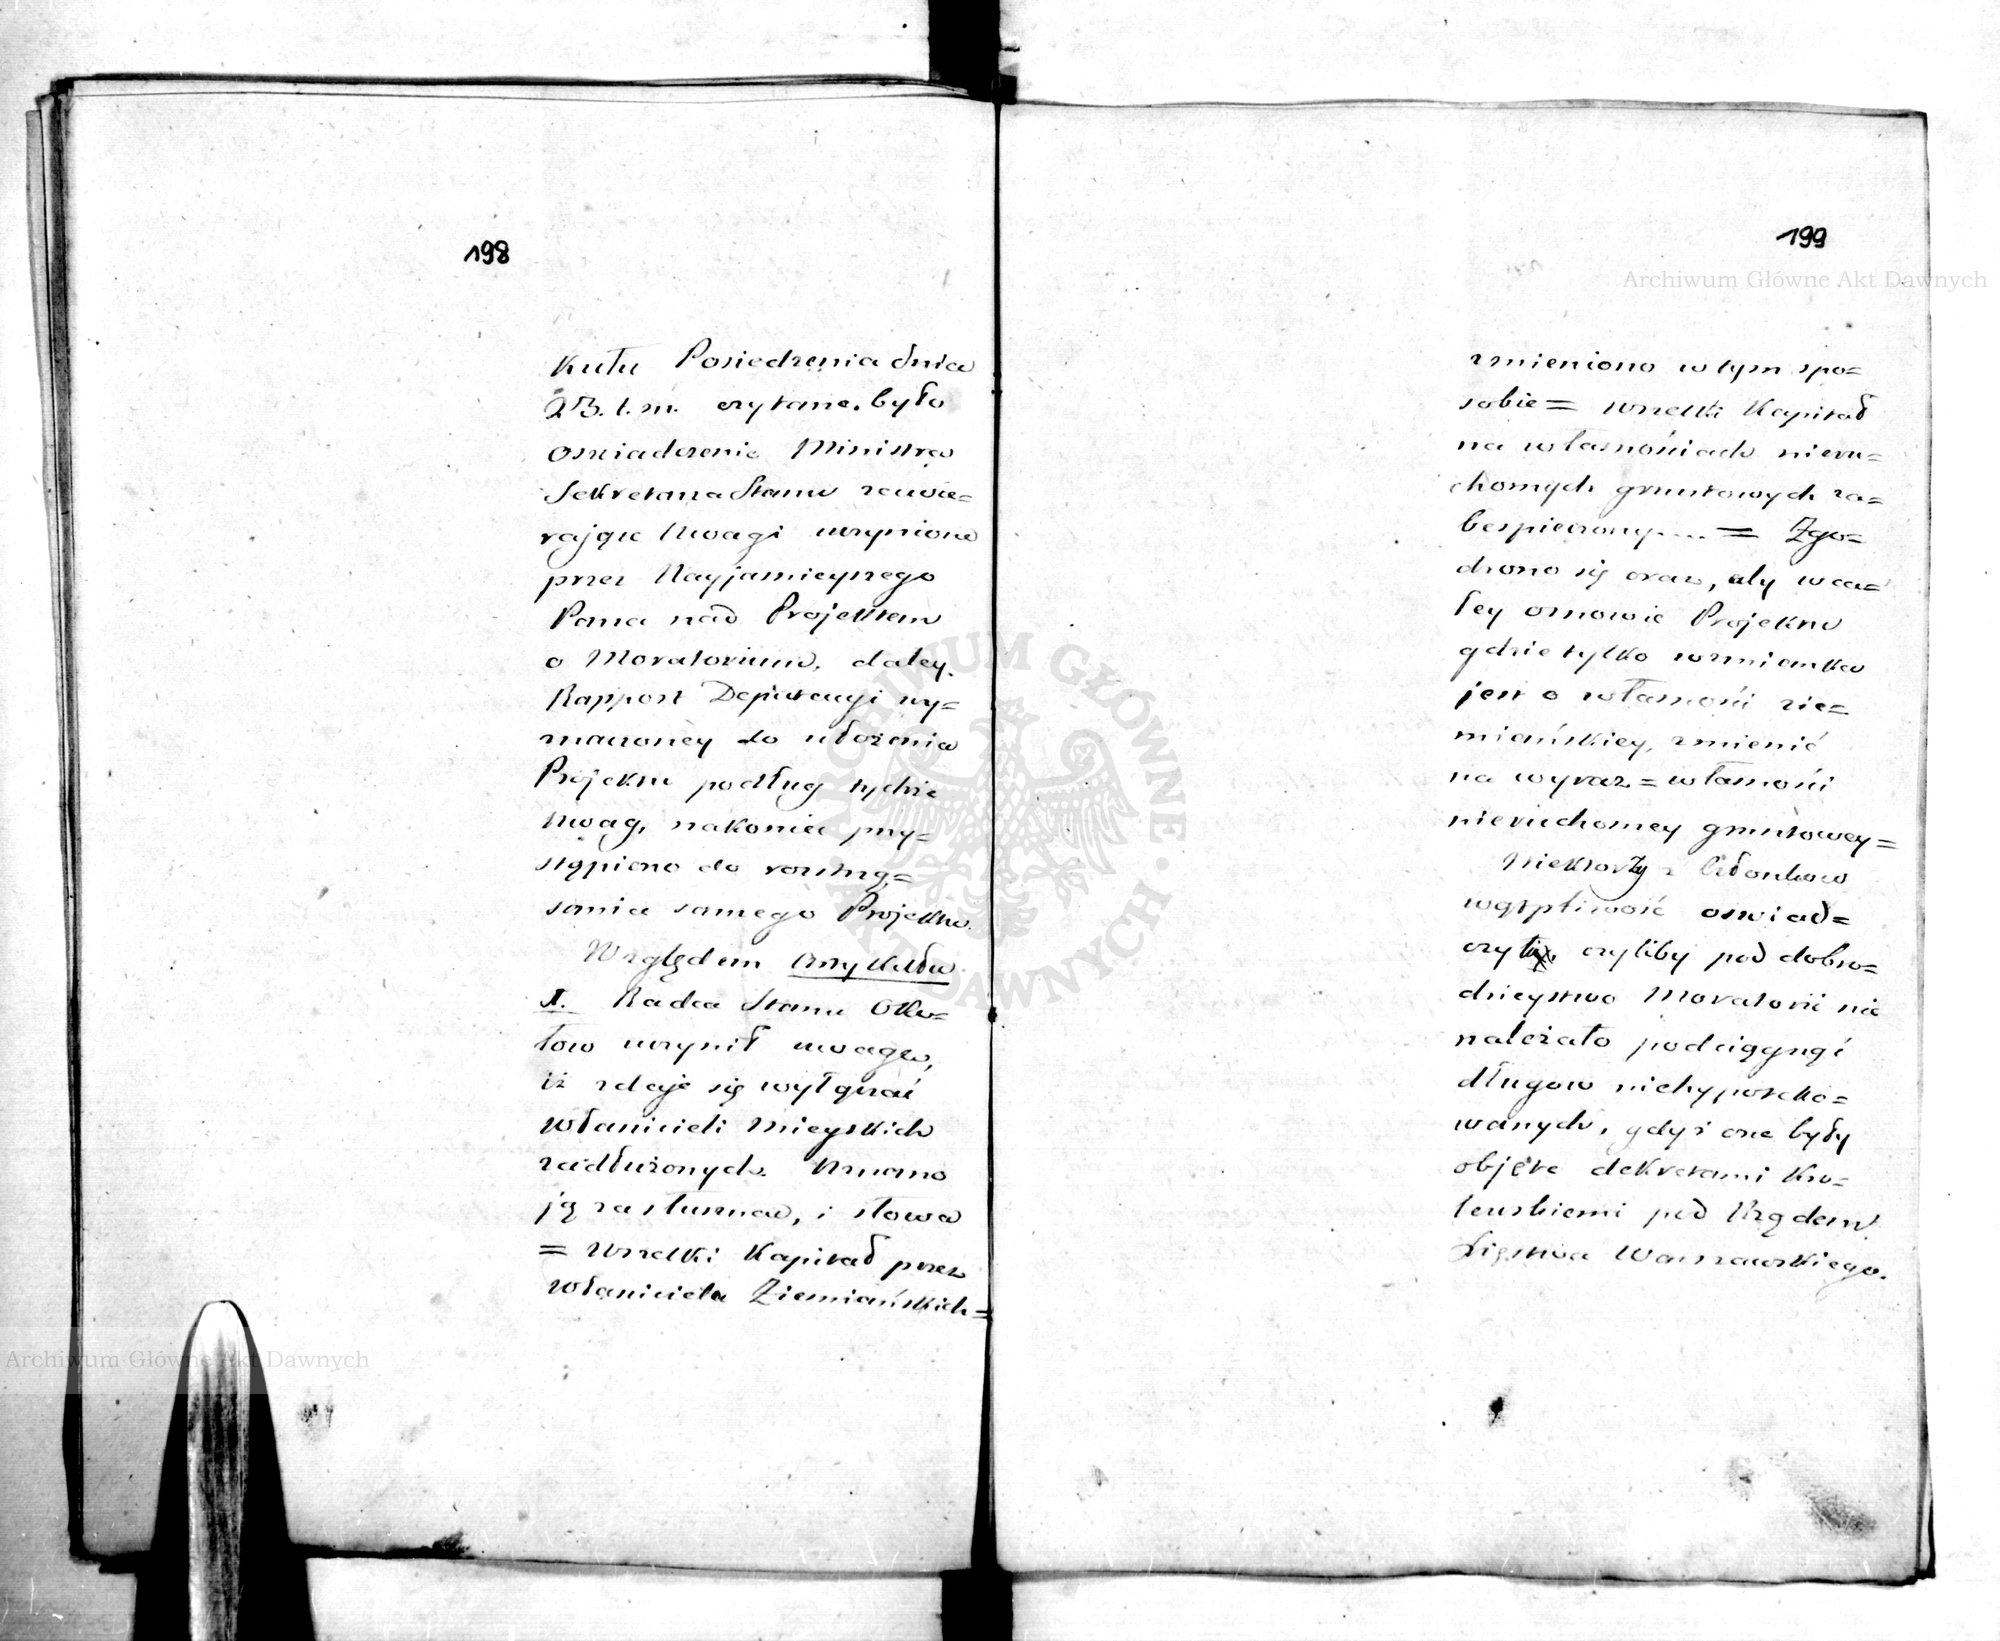 198
kułu Posiedzenia dnia
23. t. m. czytane było
oswiadczenie Ministra
Sekretarza Stanu zawie=
rające Uwagi uczynione
przez Nayjasnieyszego
Pana nad Projektem
o Moratorium, daley
Rapport Deputacyi wy=
znaczoney do ułożenia
Projektu podług tychże
Uwag, nakoniec przy=
stąpiono do roztrzą=
sania samego Projektu.
Względem Artykułu
I. Radca Stanu Oku=
łow uczynił uwagę,
iż zdaje się wyłączać
właścicieli mieyskich
zadłużonych. Uznano
ją za słuszna, i słowa
= wszelki Kapitał przez
właściciela Ziemiańskich=
199
Archiwum Główne Akt Dawnych
zmieniono w tym spo=
sobie = wszelki Kapitał
na własnościach nieru=
chomych gruntowych za=
bespieczony.... = Zgo=
dzono się oraz, aby w ca=
łey osnowie Projektu
gdzie tylko wzmianka
jest o własności zie=
miańskiey, zmienić
na wyraz = własności
nieruchomey gruntowey=
Niektorzy z Członkow
wątpliwość oswiad=
czyli, czyliby pod dobro=
dzieystwo Moratorii nie
należało podciągnąć
długow niehypoteko=
wanych, gdyż one były
objęte dekretami Kro=
lewskiemi pod Rządem
Xięstwa Warszawskiego.
ARCHIWUM GŁÓWNE AKT DAWNYCH
Archiwum Główne Akt Dawnych